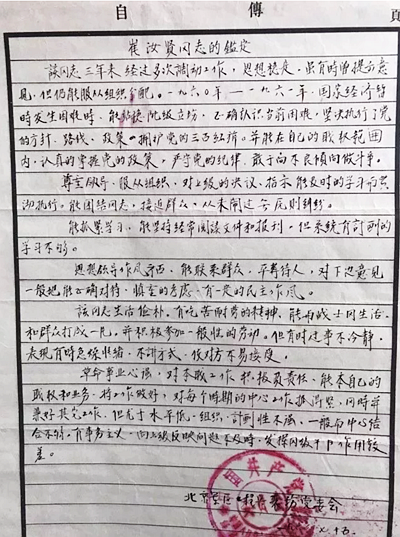 自 傳
頁
崔汝賢同志的鑑定
該同志三年来经过多次調动工作，思想稳定，虽有时曾提示意
見，但仍能服从组织分配。一九六〇年——一九六一年，国家经济暂
时发生困难时，能站稳阶级立场，正确认识当前困难，坚决执行了党
的方針、路线、政策，拥护党的三面红旗。并能在自己的职权範囲
内，认真的掌握党的政策，严守党的纪律，敢于向不良傾向做斗争。
尊重領导、服从组织，对上级的决议、指示能及时的学习而贯
彻执行。能团结同志，接近群众，从未闹过无原則纠纷。
能抓紧学习、能坚持经常閲读文件和报刊，但系统有計划的
学习不够。
思想領导作风，能联系群众，平等待人，对下边意见
一般地能正确对待，慎重的考虑，有一定的民主作风。
該同志生活俭朴，有吃苦耐劳的精神，能与战士同生活
和群众打成一片，并积极参加一般性的劳动。但有时遇事不冷静，
表现有时急躁，不講方式，使对方不易接受。
革命事业心强，对本职工作积极負责任，能本自己的
职权和业务，将工作做好，对每个时期的中心工作抓得紧，同时并
兼好其它工作。但尤于水平低，组织、計划性不强，一般与中心结
合不够。有事务主义，向上级反映问题不及时，发揮同级干部作用较
差。
北京
委会